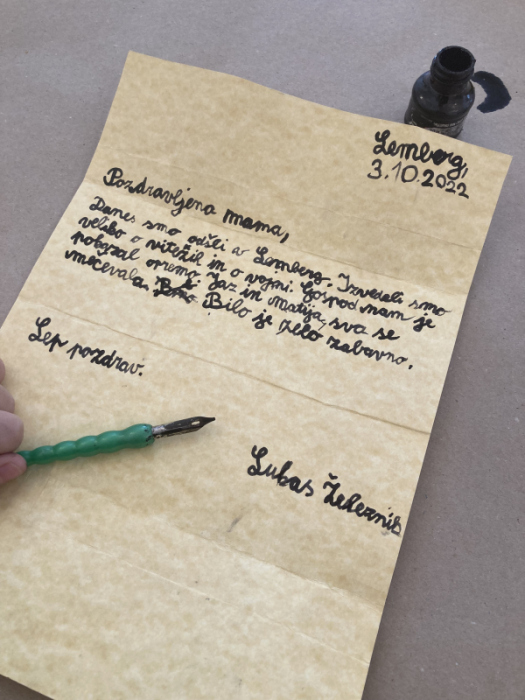 Lemberg,
3.10.2022
Pozdravljena mama,
Danes smo odšli v Lemberg. Izvedeli smo
veliko o vitezih in o vojni. Gospod nam je
pokazal opremo. Jaz in Matija, sva se
mečevala. Bilo je zelo zabavno.
Lep pozdrav.
Lukas Železnik